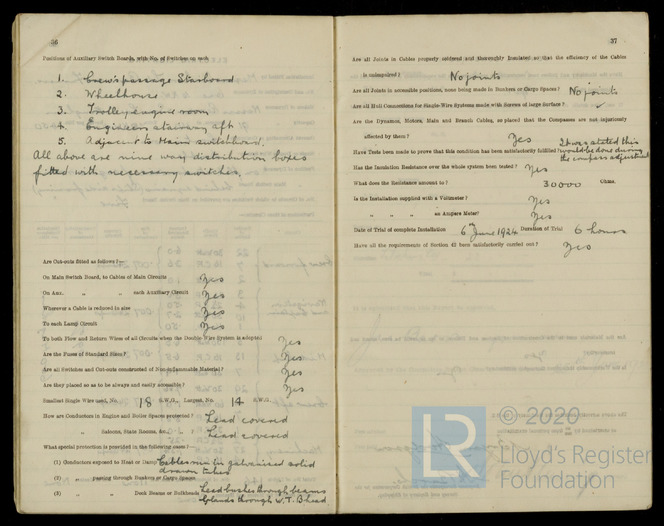 36
Positions of Auxiliary Switch Boards, with No. of Switches on each
1. Crew's passage Starboard
2. Wheelhouse
3. Trolley engine room
4. Engineers stairway aft
5. Adjacent to Main switchboard.
All above are nine way distribution boxes
fitted with necessary switches.
Are Cut-outs fitted as follows?—
On Main Switch Board, to Cables of Main Circuits Yes
On Aux. „ „ each Auxiliary Circuit Yes
Wherever a Cable is reduced in size Yes
To each Lamp Circuit Yes
To both Flow and Return Wires of all Circuits when the Double Wire System is adopted Yes
Are the Fuses of Standard Sizes? Yes
Are all Switches and Cut-outs constructed of Non-inflammable Material? Yes
Are they placed so as to be always and easily accessible? Yes
Smallest Single Wire used, No. 18 S.W.G., Largest, No. 14 S.W.G.
How are Conductors in Engine and Boiler Spaces protected? Lead covered
„ Saloons, State Rooms, &c., „ Lead covered
What special protection is provided in the following cases?—
(1) Conductors exposed to Heat or Damp Cables run in galvanised solid
drawn tubes
(2) „ passing through Bunkers or Cargo Spaces
(3) „ „ Deck Beams or Bulkheads Lead bushes through beams
Glands through W.T. Bhead
37
Are all Joints in Cables properly soldered and thoroughly Insulated so that the efficiency of the Cables
is unimpaired? No joints
Are all Joints in accessible positions, none being made in Bunkers or Cargo Spaces? No joints
Are all Hull Connections for Single-Wire Systems made with Screws of large surface? ✓
Are the Dynamos, Motors, Main and Branch Cables, so placed that the Compasses are not injuriously
affected by them? Yes
Have Tests been made to prove that this condition has been satisfactorily fulfilled? It was stated this
would be done during
the compass adjustment
Has the Insulation Resistance over the whole system been tested? Yes
What does the Resistance amount to? 30000 Ohms.
Is the Installation supplied with a Voltmeter? Yes
„ „ „ an Ampère Meter? Yes
Date of Trial of complete Installation 6th June 1924 Duration of Trial 6 hours
Have all the requirements of Section 42 been satisfactorily carried out? Yes
© 2020
LR
Lloyd's Register
Foundation